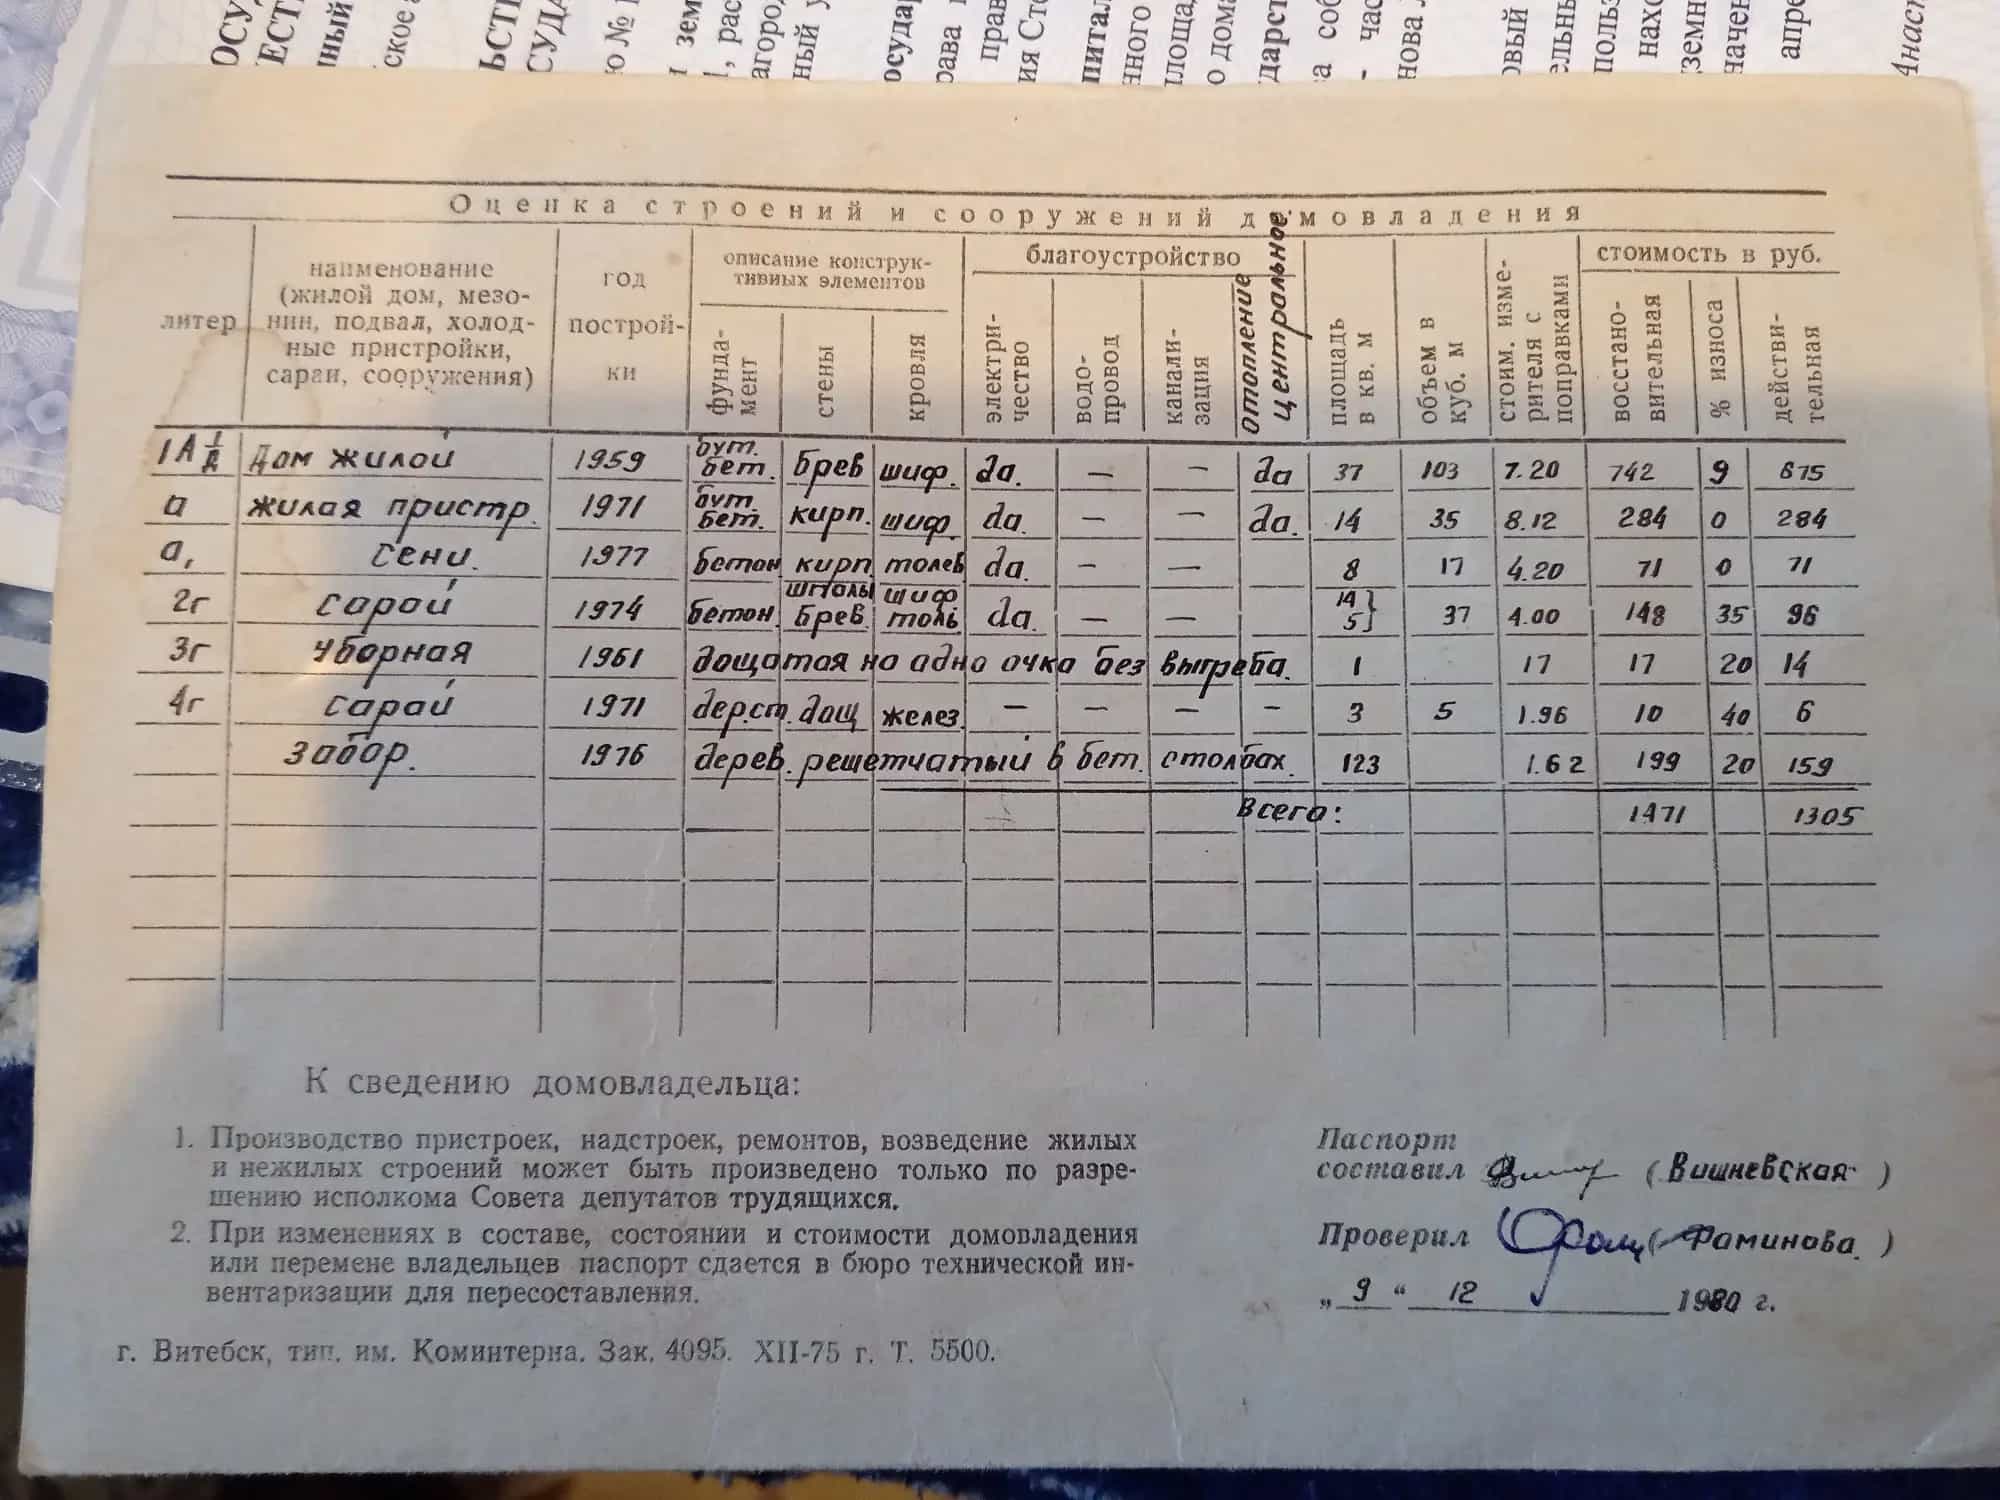 Оценка строений и сооружений домовладения
литер
наименование (жилой дом, мезо-
нин, подвал, холод-
ные пристройки,
сараи, сооружения)
год
построй-
ки
описание конструк-
тивных элементов
фунда-
мент
стены
кровля
благоустройство
электри-
чество
водо-
провод
канали-
зация
отопление
центральное
площадь
в кв. м
объем в
куб. м
стоим. изме-
рителя с
поправками
стоимость в руб.
восстано-
вительная
% износа
действи-
тельная
1А дом жилой 1959 бут. бет. брев шиф. да. — — да 37 103 7.20 742 9 675
а жилая пристр. 1971 бут. бет. кирп. шиф. да. — — да. 14 35 8.12 284 0 284
а, сени. 1977 бетон кирп. толев да. — — 8 17 4.20 71 0 71
2г сарай 1974 бетон. шпалы брев. шиф толь да. — — 14 5 37 4.00 148 35 96
3г уборная 1961 дощатая на одно очко без выгреба. 1 17 17 20 14
4г сарай 1971 дер.ст. дощ желез. — — — — 3 5 1.96 10 40 6
забор. 1976 дерев. решетчатый в бет. столбах. 123 1.62 199 20 159
Всего: 1471 1305
К сведению домовладельца:
1. Производство пристроек, надстроек, ремонтов, возведение жилых
и нежилых строений может быть произведено только по разре-
шению исполкома Совета депутатов трудящихся.
2. При изменениях в составе, состоянии и стоимости домовладения
или перемене владельцев паспорт сдается в бюро технической ин-
вентаризации для пересоставления.
Паспорт
составил (Вишневская)
Проверил (Фаминова.)
„9“ 12 1980 г.
г. Витебск, тип. им. Коминтерна. Зак. 4095. XII-75 г. Т. 5500.